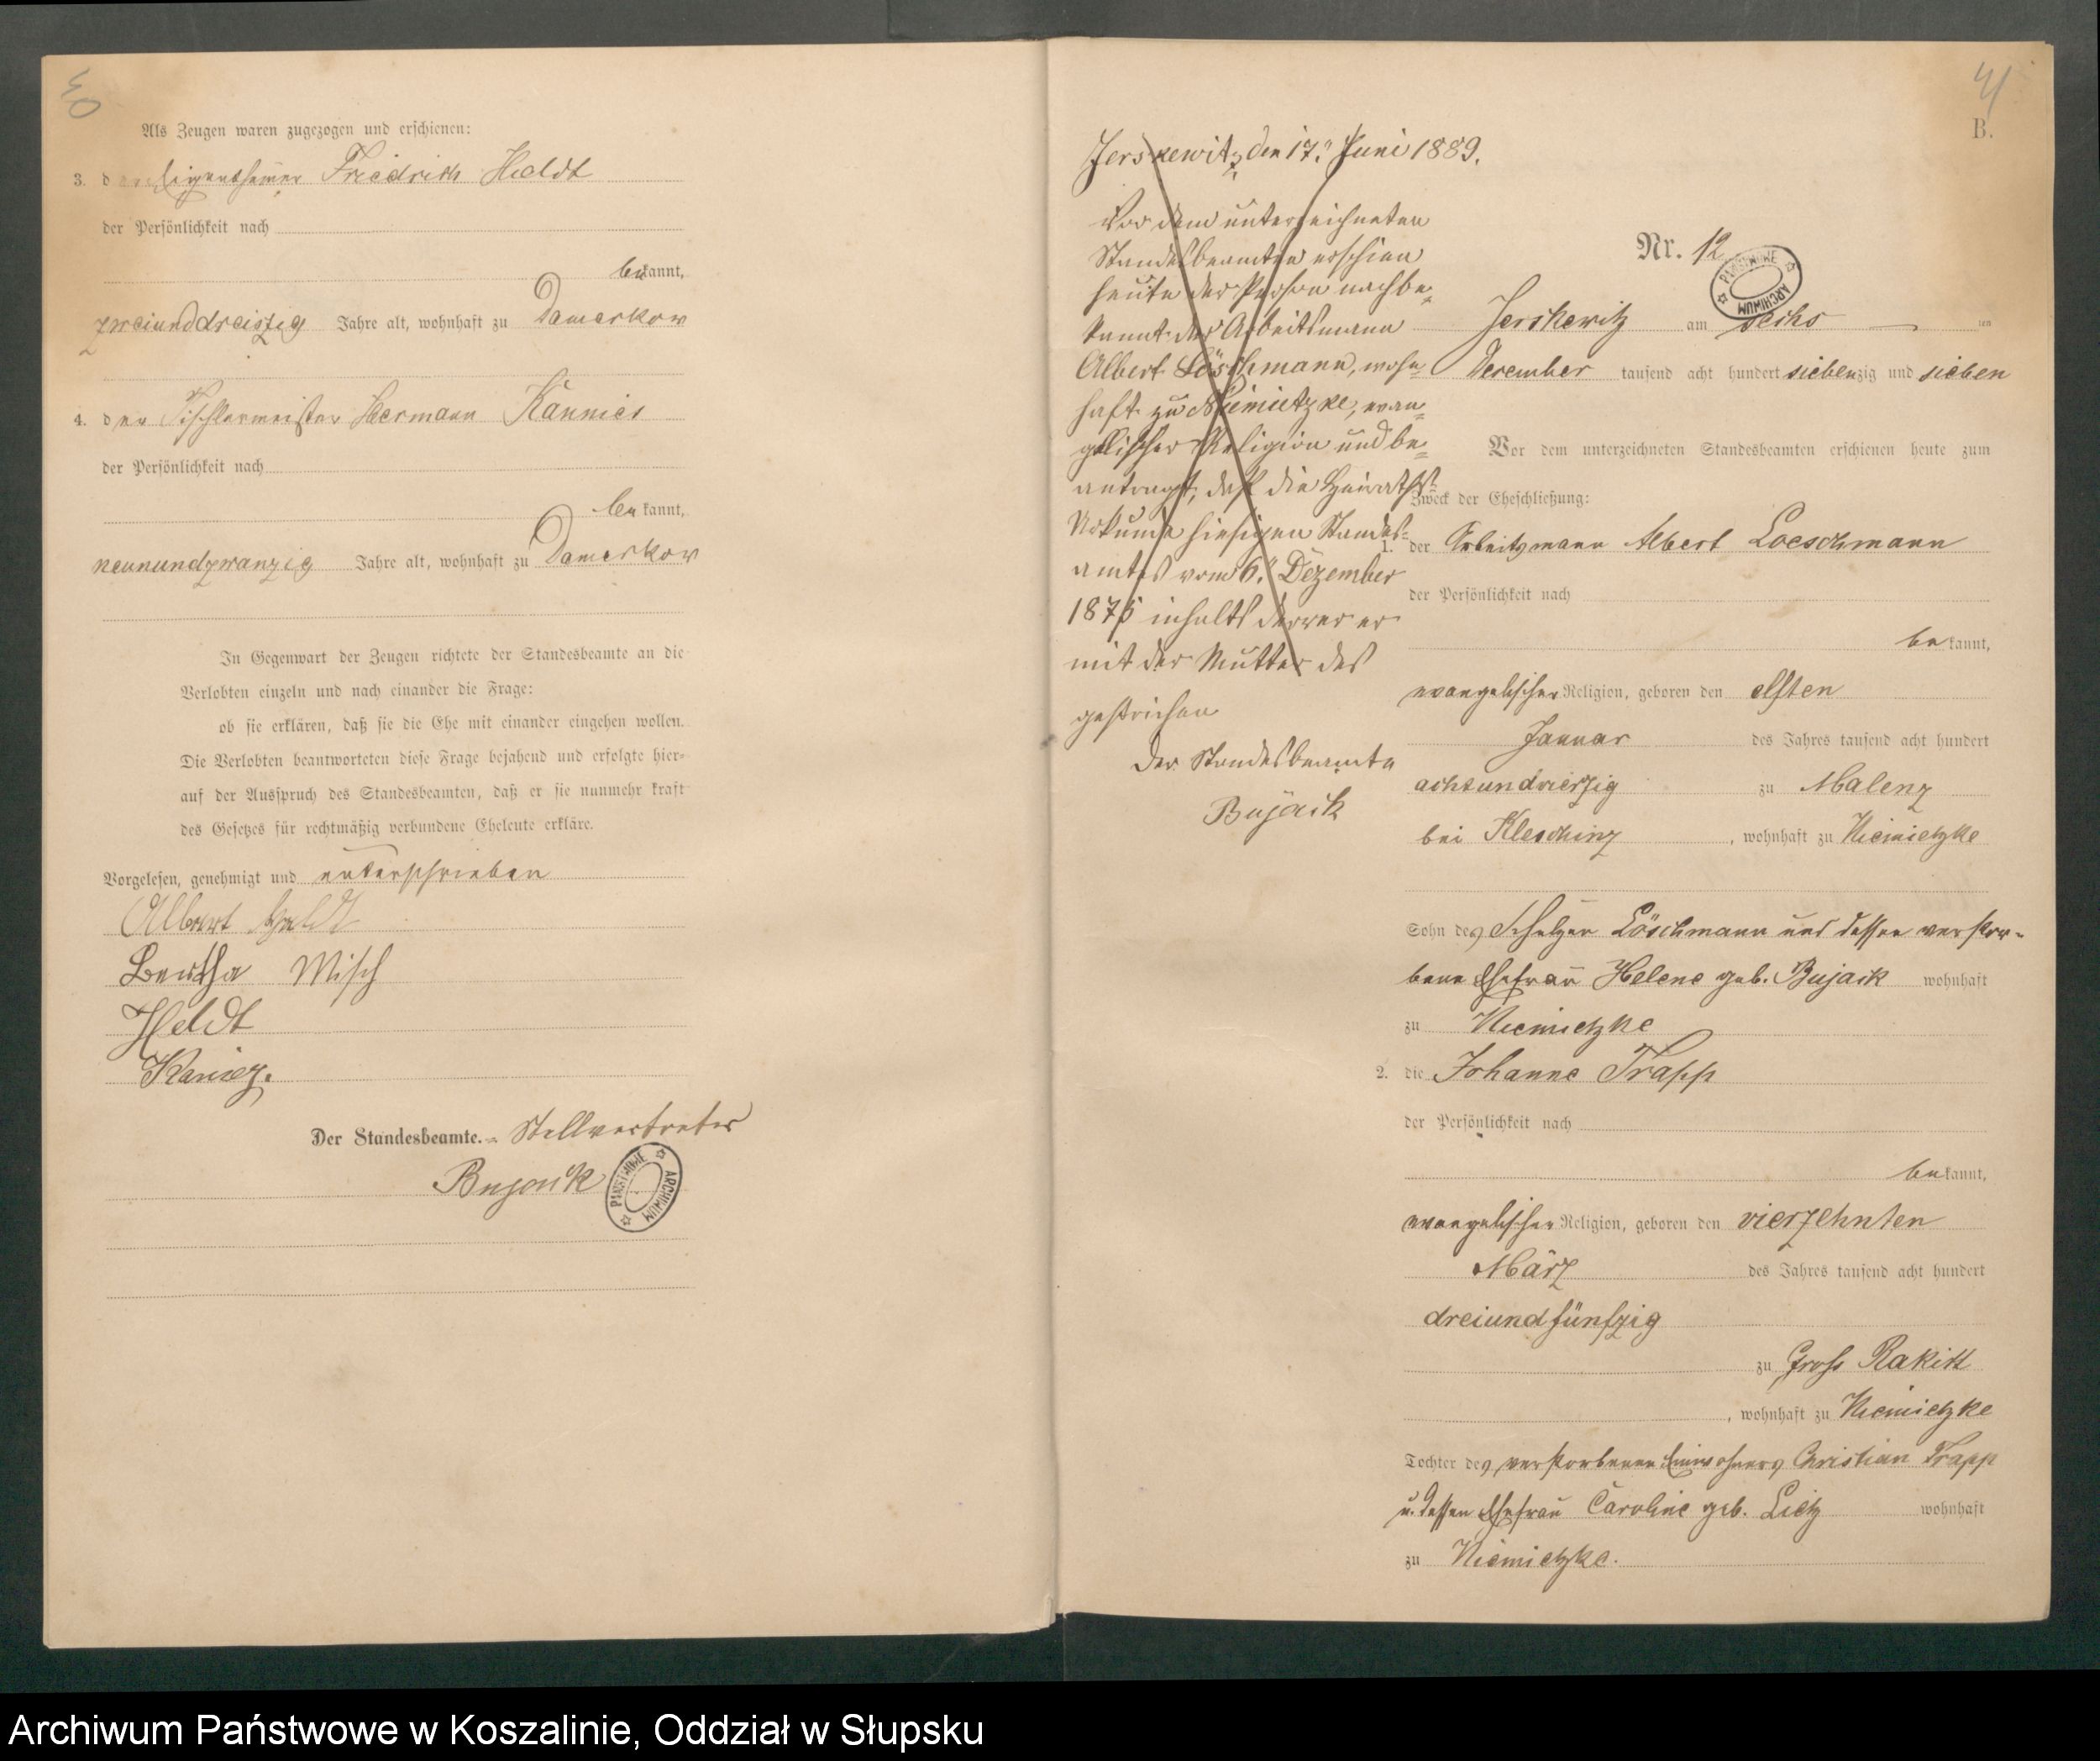 30
Als Zeugen waren zugezogen und erschienen:
3. der Eigenthümer Friedrich Heldt
der Persönlichkeit nach
bekannt,
zweiunddreiszig Jahre alt, wohnhaft zu Damerkow
4. der Tischlermeister Hermann Kannies
der Persönlichkeit nach
bekannt,
neunundzwanzig Jahre alt, wohnhaft zu Damerkow
In Gegenwart der Zeugen richtete der Standesbeamte an die
Verlobten einzeln und nach einander die Frage:
ob sie erklären, daß sie die Ehe mit einander eingehen wollen.
Die Verlobten beantworteten diese Frage bejahend und erfolgte hier-
auf der Ausspruch des Standesbeamten, daß er sie nunmehr kraft
des Gesetzes für rechtmäßig verbundene Eheleute erkläre.
Vorgelesen, genehmigt und unterschrieben
Albert Heldt
Bertha Misch
Heldt
Der Standesbeamte. Stellvertreter
Bujack
PAŃSTWOWE ARCHIWUM
41
B.
Jerskewitz, den 17. Juni 1889.
Vor dem unterzeichneten
Standesbeamten erschien
heute der Person nach be-
kannt der Arbeitsmann
Albert Löschmann, wohn-
haft zu Niemietzke, evan-
gelischer Religion und be-
antragt, daß die Heiraths-
Urkunde hiesigen Standes-
amtes vom 6. Dezember
187 inhalts derer er
mit der Mutter des
gestrichen
Der Standesbeamte
Bujack
Nr. 12
PAŃSTWOWE ARCHIWUM
Jerskewitz am sechs ten
December tausend acht hundert siebenzig und sieben
Vor dem unterzeichneten Standesbeamten erschienen heute zum
Zweck der Eheschließung:
1. der Arbeitsmann Albert Loeschmann
der Persönlichkeit nach
bekannt,
evangelischer Religion, geboren den elften
Januar des Jahres tausend acht hundert
achtundvierzig zu Malenz
bei Kleschinz, wohnhaft zu Niemietzke
Sohn des Schulzen Löschmann und dessen verstor-
bene Ehefrau Helene geb. Bujack wohnhaft
zu Niemietzke
2. die Johanne Trapp
der Persönlichkeit nach
bekannt,
evangelischer Religion, geboren den vierzehnten
März des Jahres tausend acht hundert
dreiundfünfzig
zu Gross Rakitt
, wohnhaft zu Niemietzke
Tochter des verstorbenen Einwohners Christian Trapp
u. dessen Ehefrau Caroline geb. Lietz wohnhaft
zu Niemietzke.
Archiwum Państwowe w Koszalinie, Oddział w Słupsku